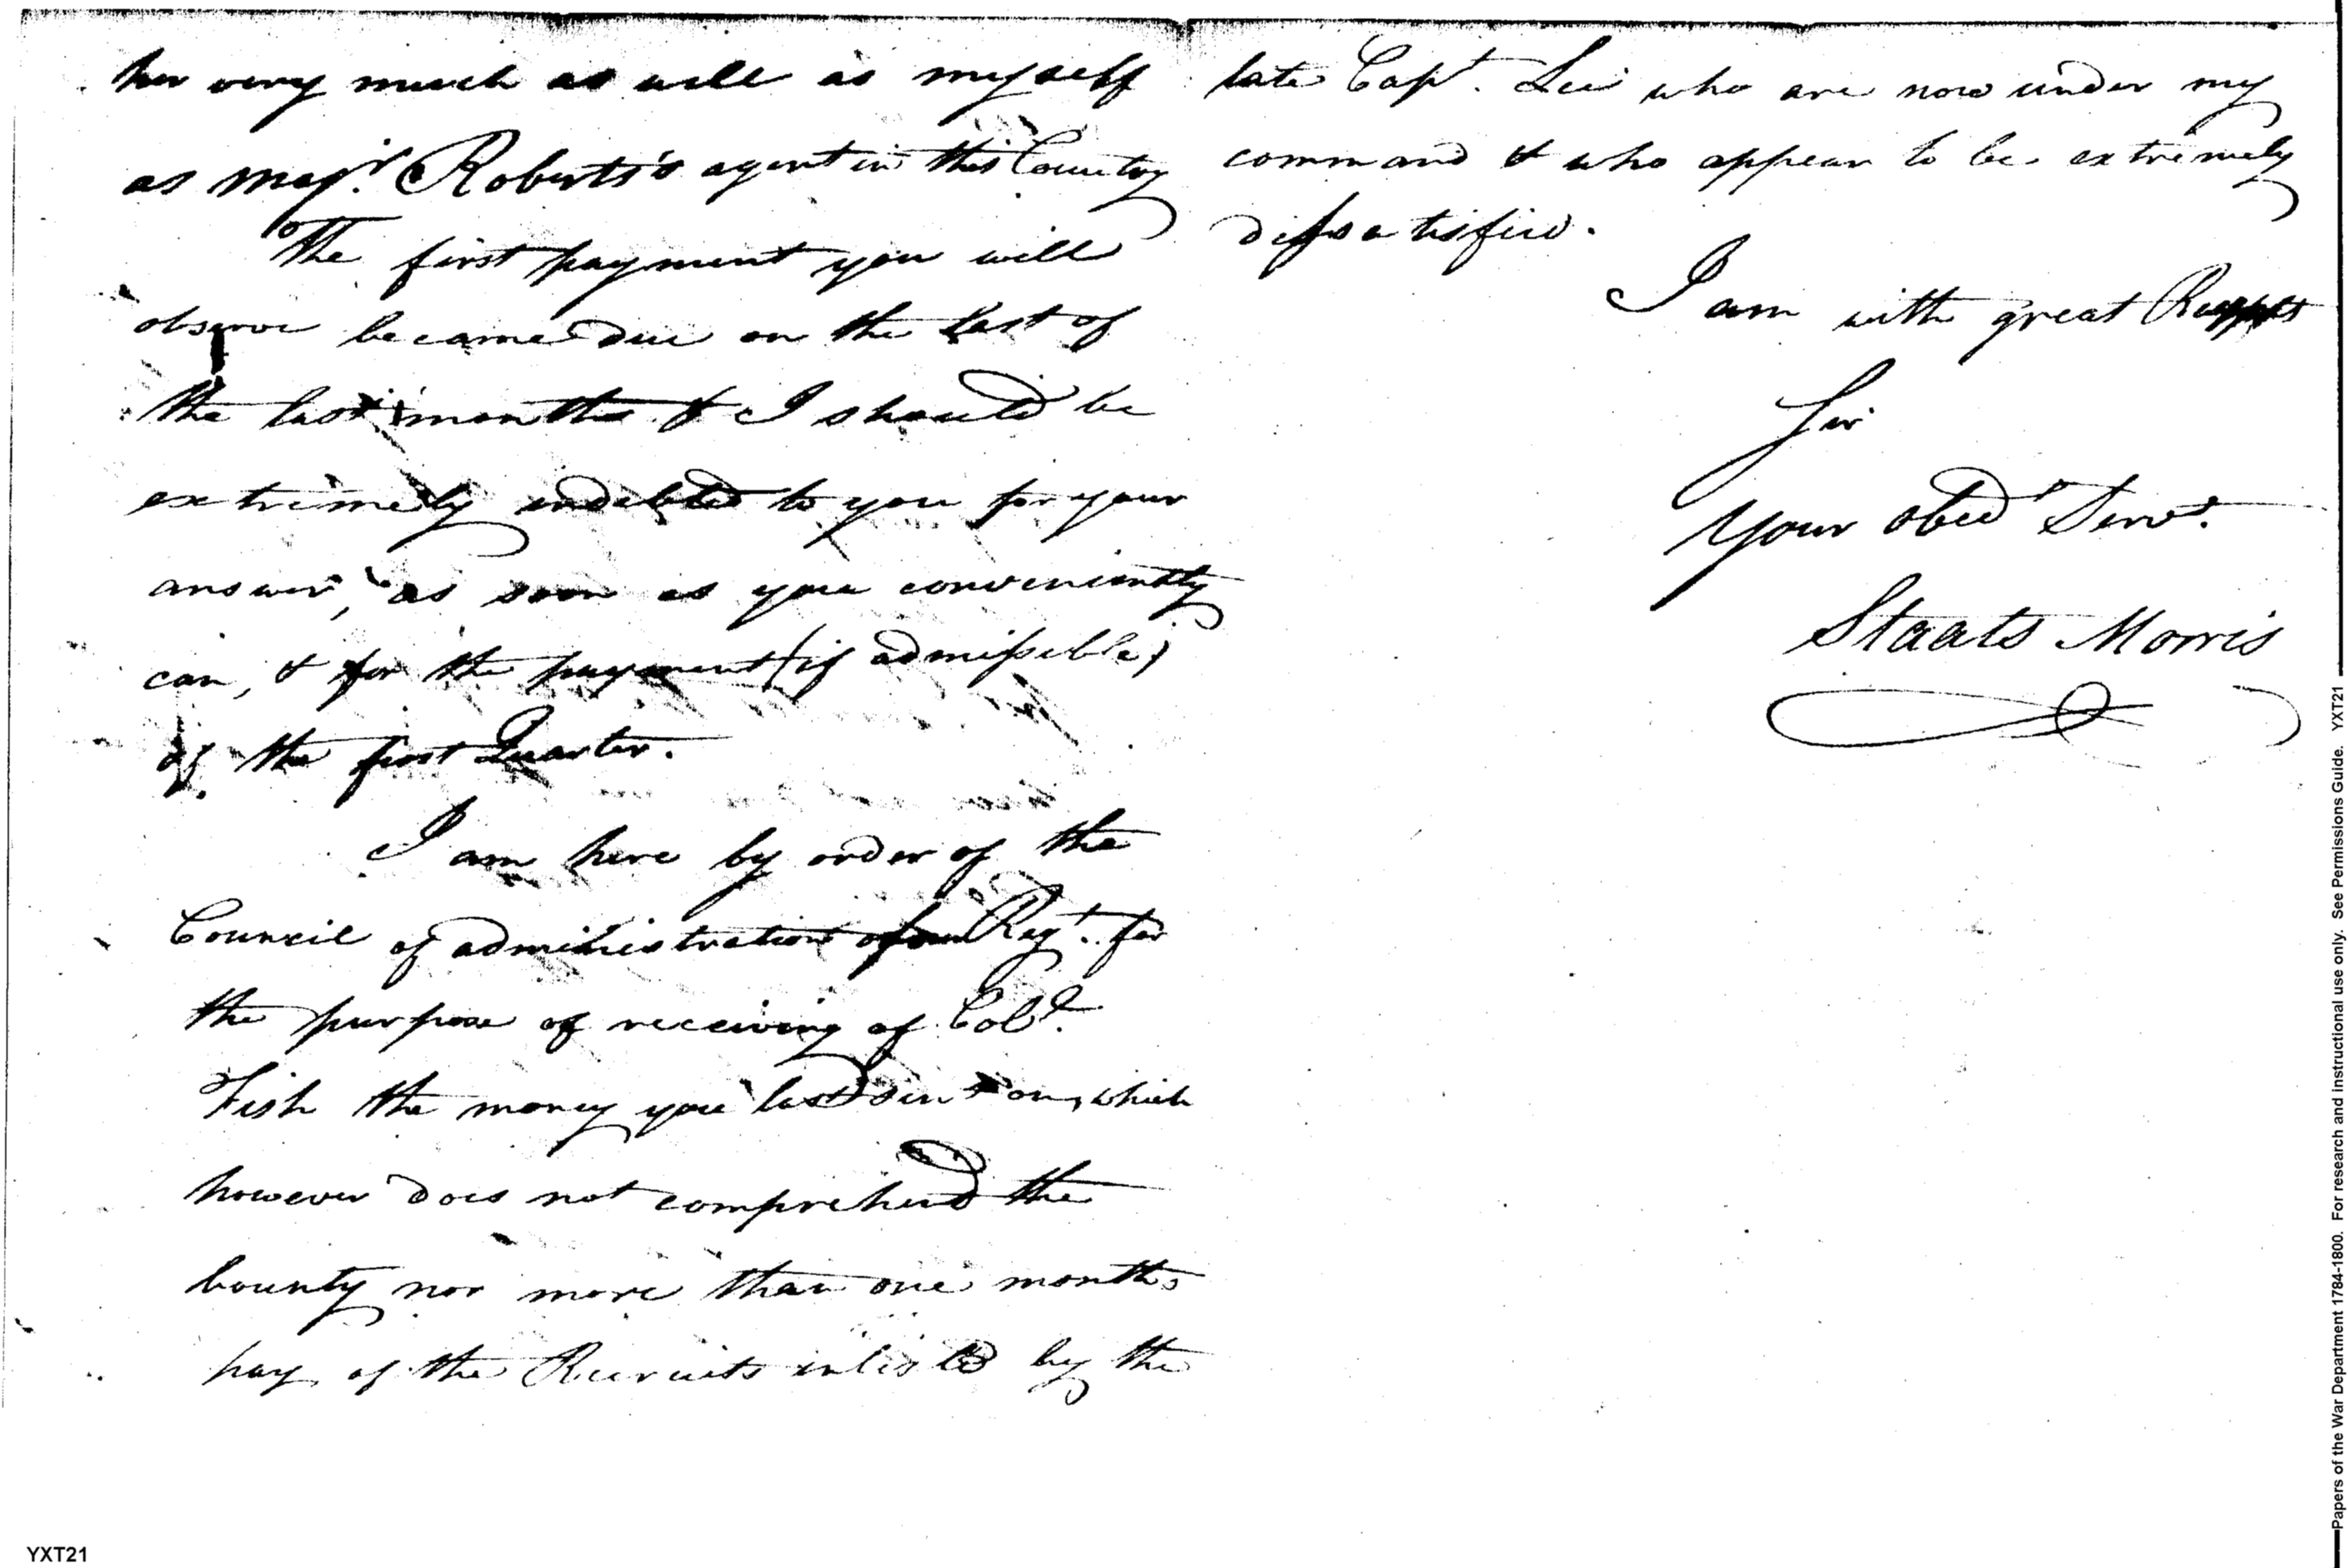 her very much as well as myself
as Majr. Roberts's agent in this Country
The first payment you will
observe became due on the last of
the last month & I should be
extremely indebted to you for your
answer, as soon as you conveniently
can, & for the payment (if admissible)
of the first Quarter.
I am here by order of the
Council of administration of our Regt. for
the purpose of receiving of Colo.
Fish the money you last sent on, which
however does not comprehend the
bounty nor more than one months
pay of the Recruits inlisted by the
late Capt. Lee who are now under my
command & who appear to be extremely
dissatisfied.
I am with great Respect
Sir
Your obedt Servt.
Staats Morris
YXT21
Papers of the War Department 1784-1800. For research and instructional use only. See Permissions Guide. YXT21